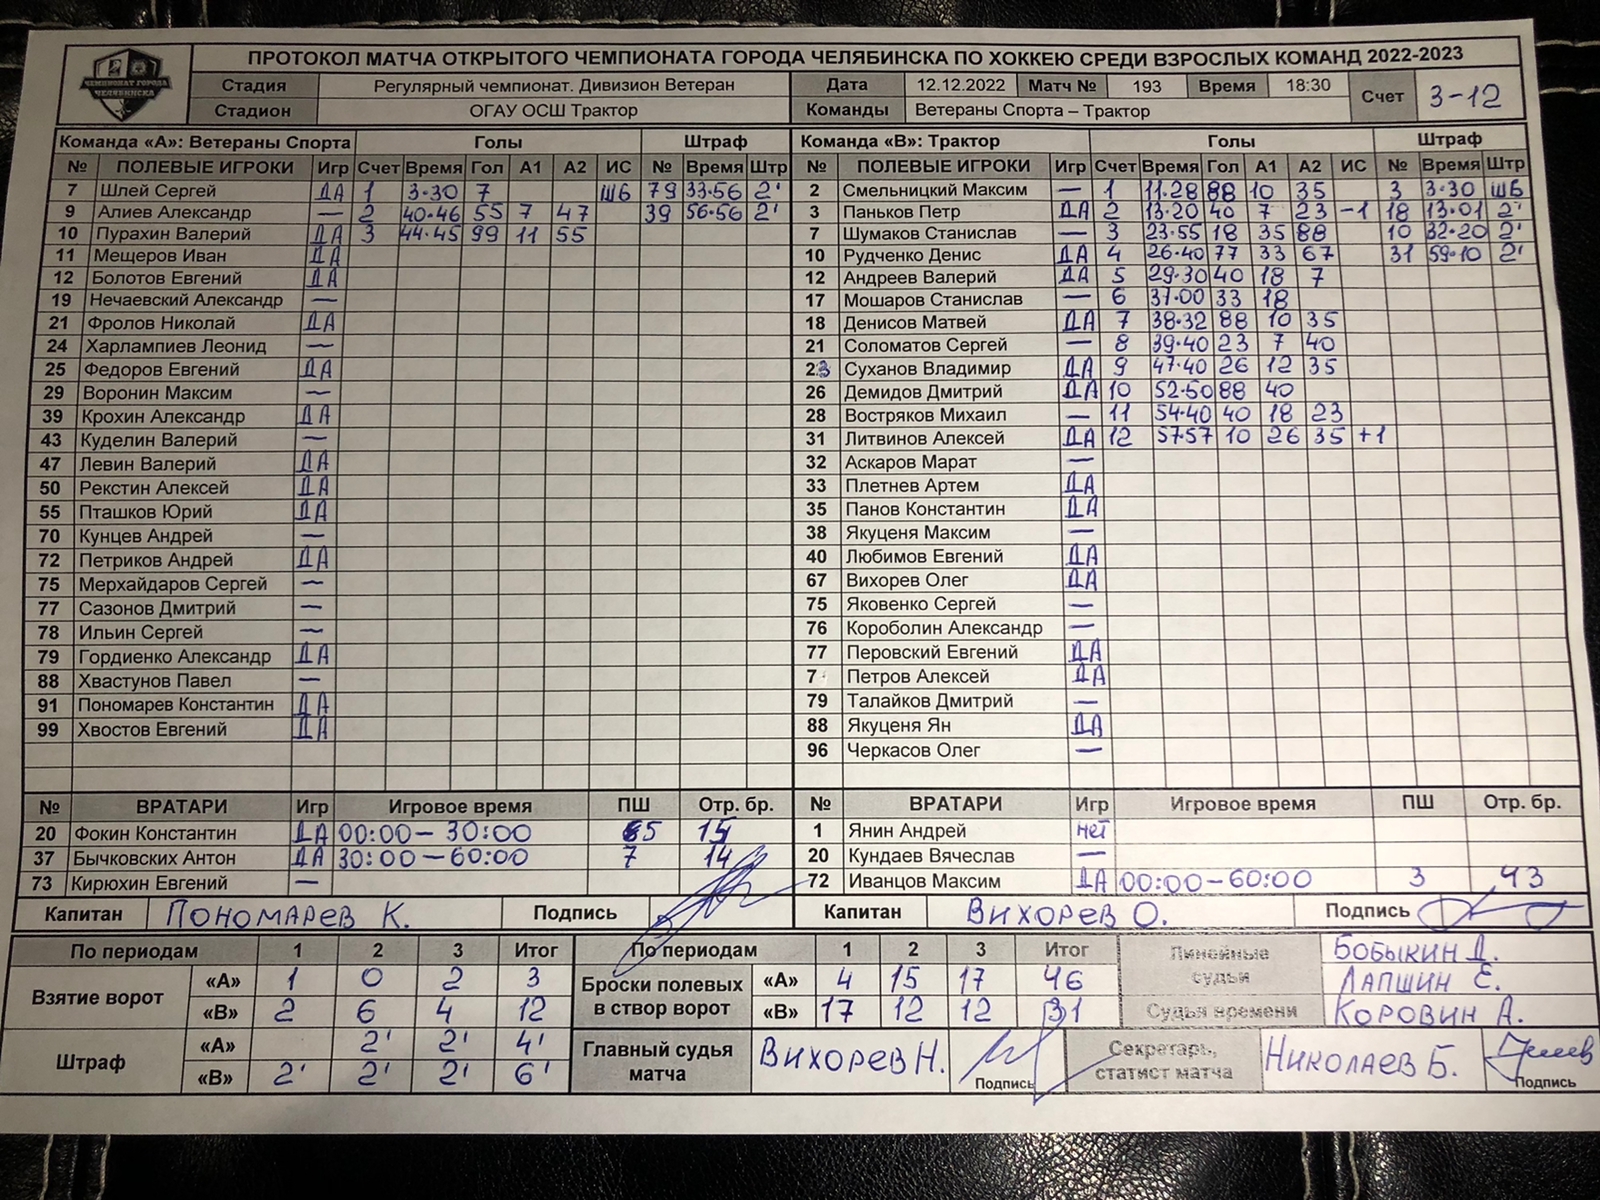 ПРОТОКОЛ МАТЧА ОТКРЫТОГО ЧЕМПИОНАТА ГОРОДА ЧЕЛЯБИНСКА ПО ХОККЕЮ СРЕДИ ВЗРОСЛЫХ КОМАНД 2022-2023
ЧЕМПИОНАТ ГОРОДА ЧЕЛЯБИНСКА
Стадия Регулярный чемпионат. Дивизион Ветеран Дата 12.12.2022 Матч № 193 Время 18:30 Счет 3-12
Стадион ОГАУ ОСШ Трактор Команды Ветераны Спорта – Трактор
Команда «А»: Ветераны Спорта Голы Штраф
№ ПОЛЕВЫЕ ИГРОКИ Игр Счет Время Гол А1 А2 ИС № Время Штр
7 Шлей Сергей ДА 1 3·30 7 ШБ 79 33·56 2'
9 Алиев Александр — 2 40·46 55 7 47 39 56·56 2'
10 Пурахин Валерий ДА 3 44·45 99 11 55
11 Мещеров Иван ДА
12 Болотов Евгений ДА
19 Нечаевский Александр —
21 Фролов Николай ДА
24 Харлампиев Леонид —
25 Федоров Евгений ДА
29 Воронин Максим —
39 Крохин Александр ДА
43 Куделин Валерий —
47 Левин Валерий ДА
50 Рекстин Алексей ДА
55 Пташков Юрий ДА
70 Кунцев Андрей —
72 Петриков Андрей ДА
75 Мерхайдаров Сергей —
77 Сазонов Дмитрий —
78 Ильин Сергей —
79 Гордиенко Александр ДА
88 Хвастунов Павел —
91 Пономарев Константин ДА
99 Хвостов Евгений ДА
№ ВРАТАРИ Игр Игровое время ПШ Отр. бр.
20 Фокин Константин ДА 00:00 – 30:00 5 15
37 Бычковских Антон ДА 30:00 – 60:00 7 14
73 Кирюхин Евгений —
Капитан ПОНОМАРЕВ К. Подпись
Команда «В»: Трактор Голы Штраф
№ ПОЛЕВЫЕ ИГРОКИ Игр Счет Время Гол А1 А2 ИС № Время Штр
2 Смельницкий Максим — 1 11.28 88 10 35 3 3·30 ШБ
3 Паньков Петр ДА 2 13·20 40 7 23 -1 18 13·01 2'
7 Шумаков Станислав — 3 23·55 18 35 88 10 32·20 2'
10 Рудченко Денис ДА 4 26·40 77 33 67 31 59·10 2'
12 Андреев Валерий ДА 5 29·30 40 18 7
17 Мошаров Станислав — 6 37·00 33 18
18 Денисов Матвей ДА 7 38·32 88 10 35
21 Соломатов Сергей — 8 39·40 23 7 40
23 Суханов Владимир ДА 9 47·40 26 12 35
26 Демидов Дмитрий ДА 10 52·50 88 40
28 Востряков Михаил — 11 54·40 40 18 23
31 Литвинов Алексей ДА 12 57·57 10 26 35 +1
32 Аскаров Марат —
33 Плетнев Артем ДА
35 Панов Константин ДА
38 Якуценя Максим —
40 Любимов Евгений ДА
67 Вихорев Олег ДА
75 Яковенко Сергей —
76 Короболин Александр —
77 Перовский Евгений ДА
7 Петров Алексей ДА
79 Талайков Дмитрий —
88 Якуценя Ян ДА
96 Черкасов Олег —
№ ВРАТАРИ Игр Игровое время ПШ Отр. бр.
1 Янин Андрей нет
20 Кундаев Вячеслав —
72 Иванцов Максим ДА 00:00 – 60:00 3 43
Капитан ВИХОРЕВ О. Подпись
По периодам 1 2 3 Итог
Взятие ворот
«А» 1 0 2 3
«В» 2 6 4 12
Штраф
«А» 2' 2' 4'
«В» 2' 2' 2' 6'
По периодам 1 2 3 Итог
Броски полевых в створ ворот
«А» 4 15 17 46
«В» 17 12 12 31
Линейные судьи БОБЫКИН Д.
ЛАПШИН Е.
Судья времени КОРОВИН А.
Главный судья матча ВИХОРЕВ Н. Подпись
Секретарь, статист матча НИКОЛАЕВ Б. Подпись